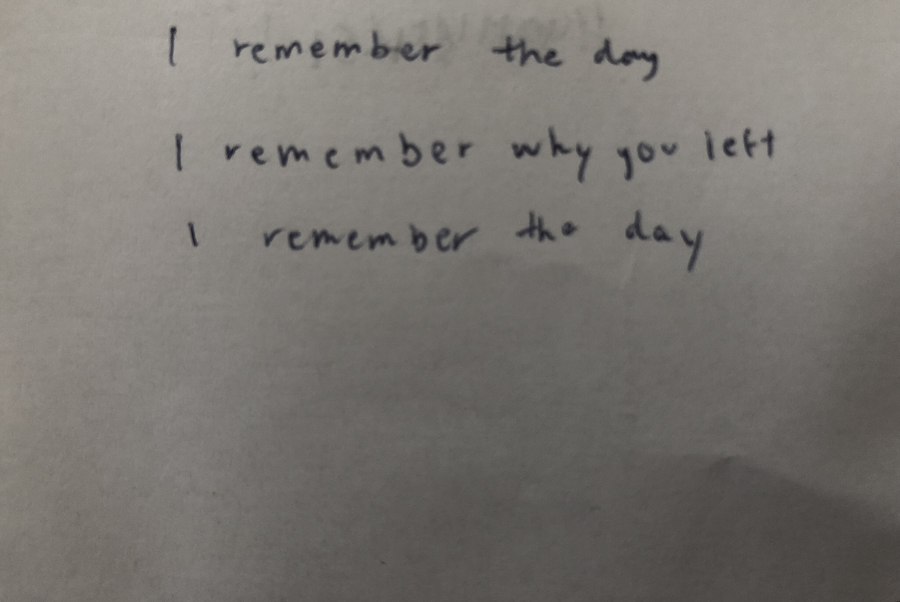 I remember the day
I remember why you left
I remember the day